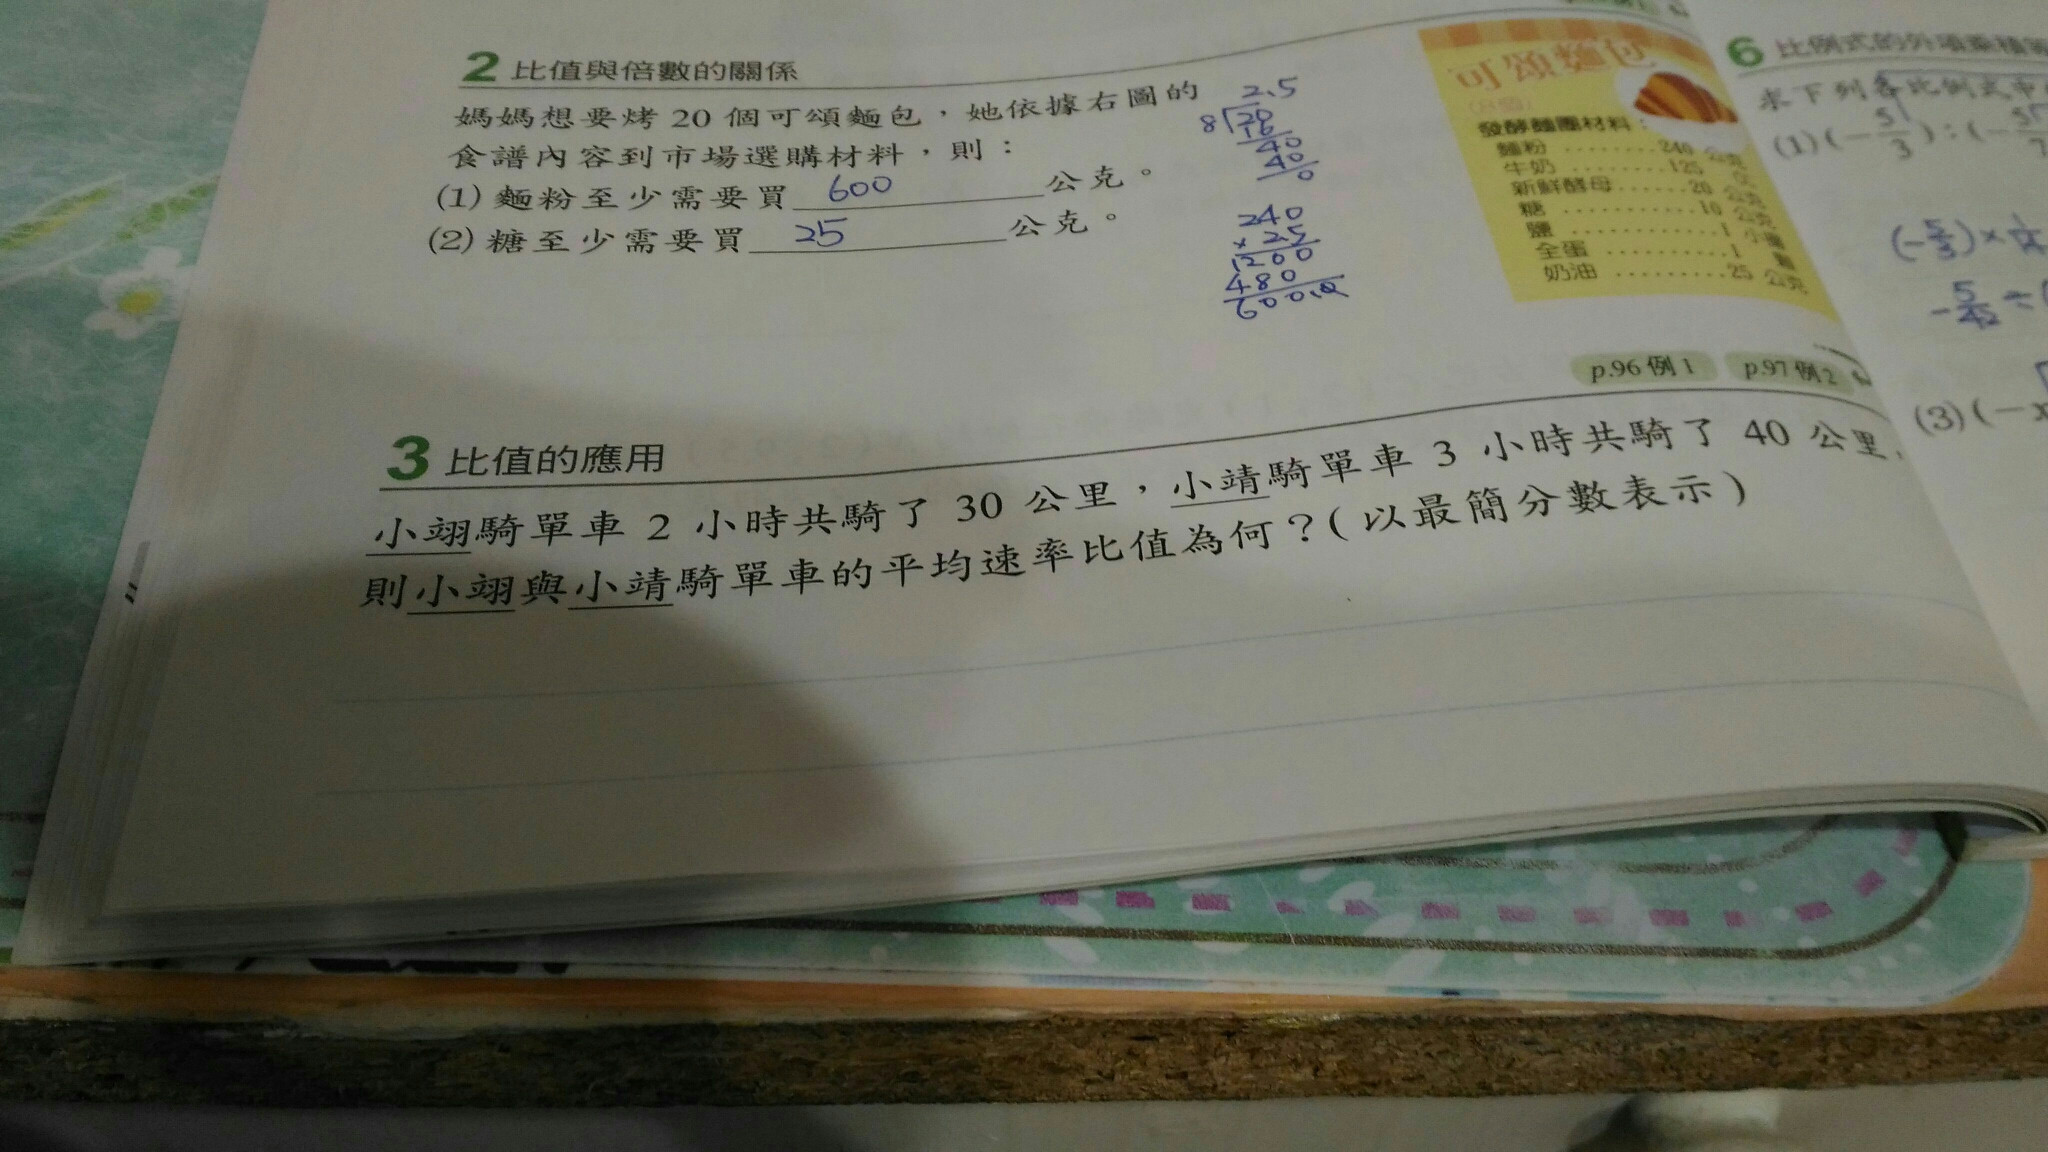 2 比值與倍數的關係
媽媽想要烤 20 個可頌麵包，她依據右圖的
食譜內容到市場選購材料，則：
(1) 麵粉至少需要買 600 公克。
(2) 糖至少需要買 25 公克。
2.5
8 20
16
40
40
0
240
× 25
1200
480
600.0
可頌麵包
發酵麵團材料：
麵粉 ......... 240 公克
牛奶 ......... 125
新鮮酵母 ...... 20 公克
糖 ............ 10 公克
鹽 ............ 1 小匙
全蛋 .......... 1 顆
奶油 ......... 25 公克
p.96 例 1 p.97 例 2
3 比值的應用
小翊騎單車 2 小時共騎了 30 公里，小靖騎單車 3 小時共騎了 40 公里，
則小翊與小靖騎單車的平均速率比值為何？（以最簡分數表示）
6 比例式的外項乘積等
求下列各比例式中
(1) (-5/3) : (-
(-5/3) ×
-5/42 ÷
(3) (-x